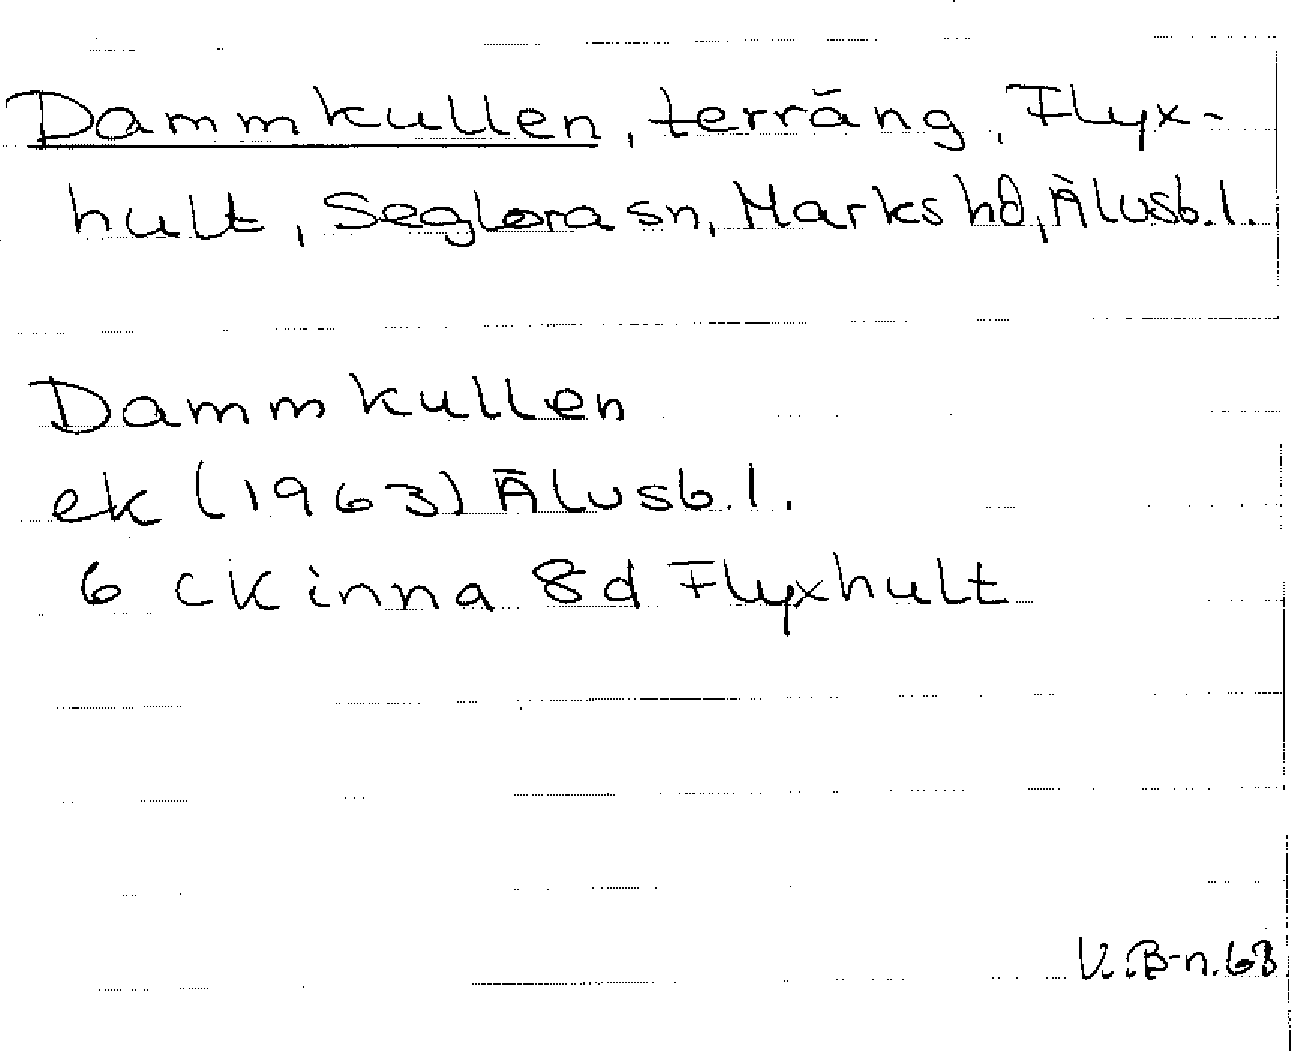 Dammkullen, terräng, Flyx-
hult, Seglora sn, Marks hd, Älvsb.l.
Dammkullen
ek (1963) Älvsb.l.
6 C Kinna 8 d Flyxhult
V.B-n.68